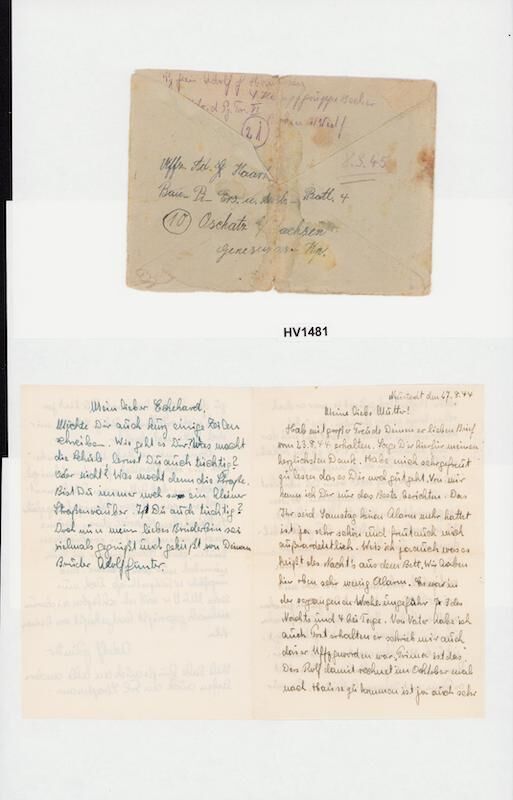 Adolf
8.3.45
21
Uffz. Ad. G. Haarn
Bau- P- Ers. u. Batl. 4
10 Oschatz Sachsen
Genesungs- Kp.
HV1481
Mein lieber Eckehard,
Möchte Dir auch kurz einige Zeilen
schreiben. Wie geht es Dir? Was macht
die Schule lernst Du auch tüchtig?
Oder nicht? Was macht denn die
Bist Du immer noch ein kleiner
Straßenräuber. Ißt Du auch tüchtig?
Doch nun mein liebes Brüderlein sei
vielmals gegrüßt und geküßt von Deinem
Bruder Adolf Günter.
Neustadt den 27.8.44
Meine liebe Mutter!
Hab mit großer Freude Deinen lieben Brief
vom 23.8.44 erhalten. Sage Dir hierfür meinen
herzlichsten Dank. Habe mich sehr gefreut
zu lesen das es Dir noch gut geht. Von mir
kann ich Dir nur das Beste berichten. Das
Ihr seid Samstag keinen Alarm mehr hattet
ist ja sehr schön und freut auch mich
außerordentlich. Weis ich ja auch was es
heißt des Nachts aus dem Bett. Wir haben
hier oben sehr wenig Alarm. Es war in
der vergangenen Woche ungefähr 3
Nachts und 4 bei Tage. Von Vater habe ich
auch Post erhalten er schrieb mir auch
das er Uffz geworden war, Prima ist das.
Das Rolf damit rechnet im Oktober mal
nach Hause zu kommen ist ja auch sehr